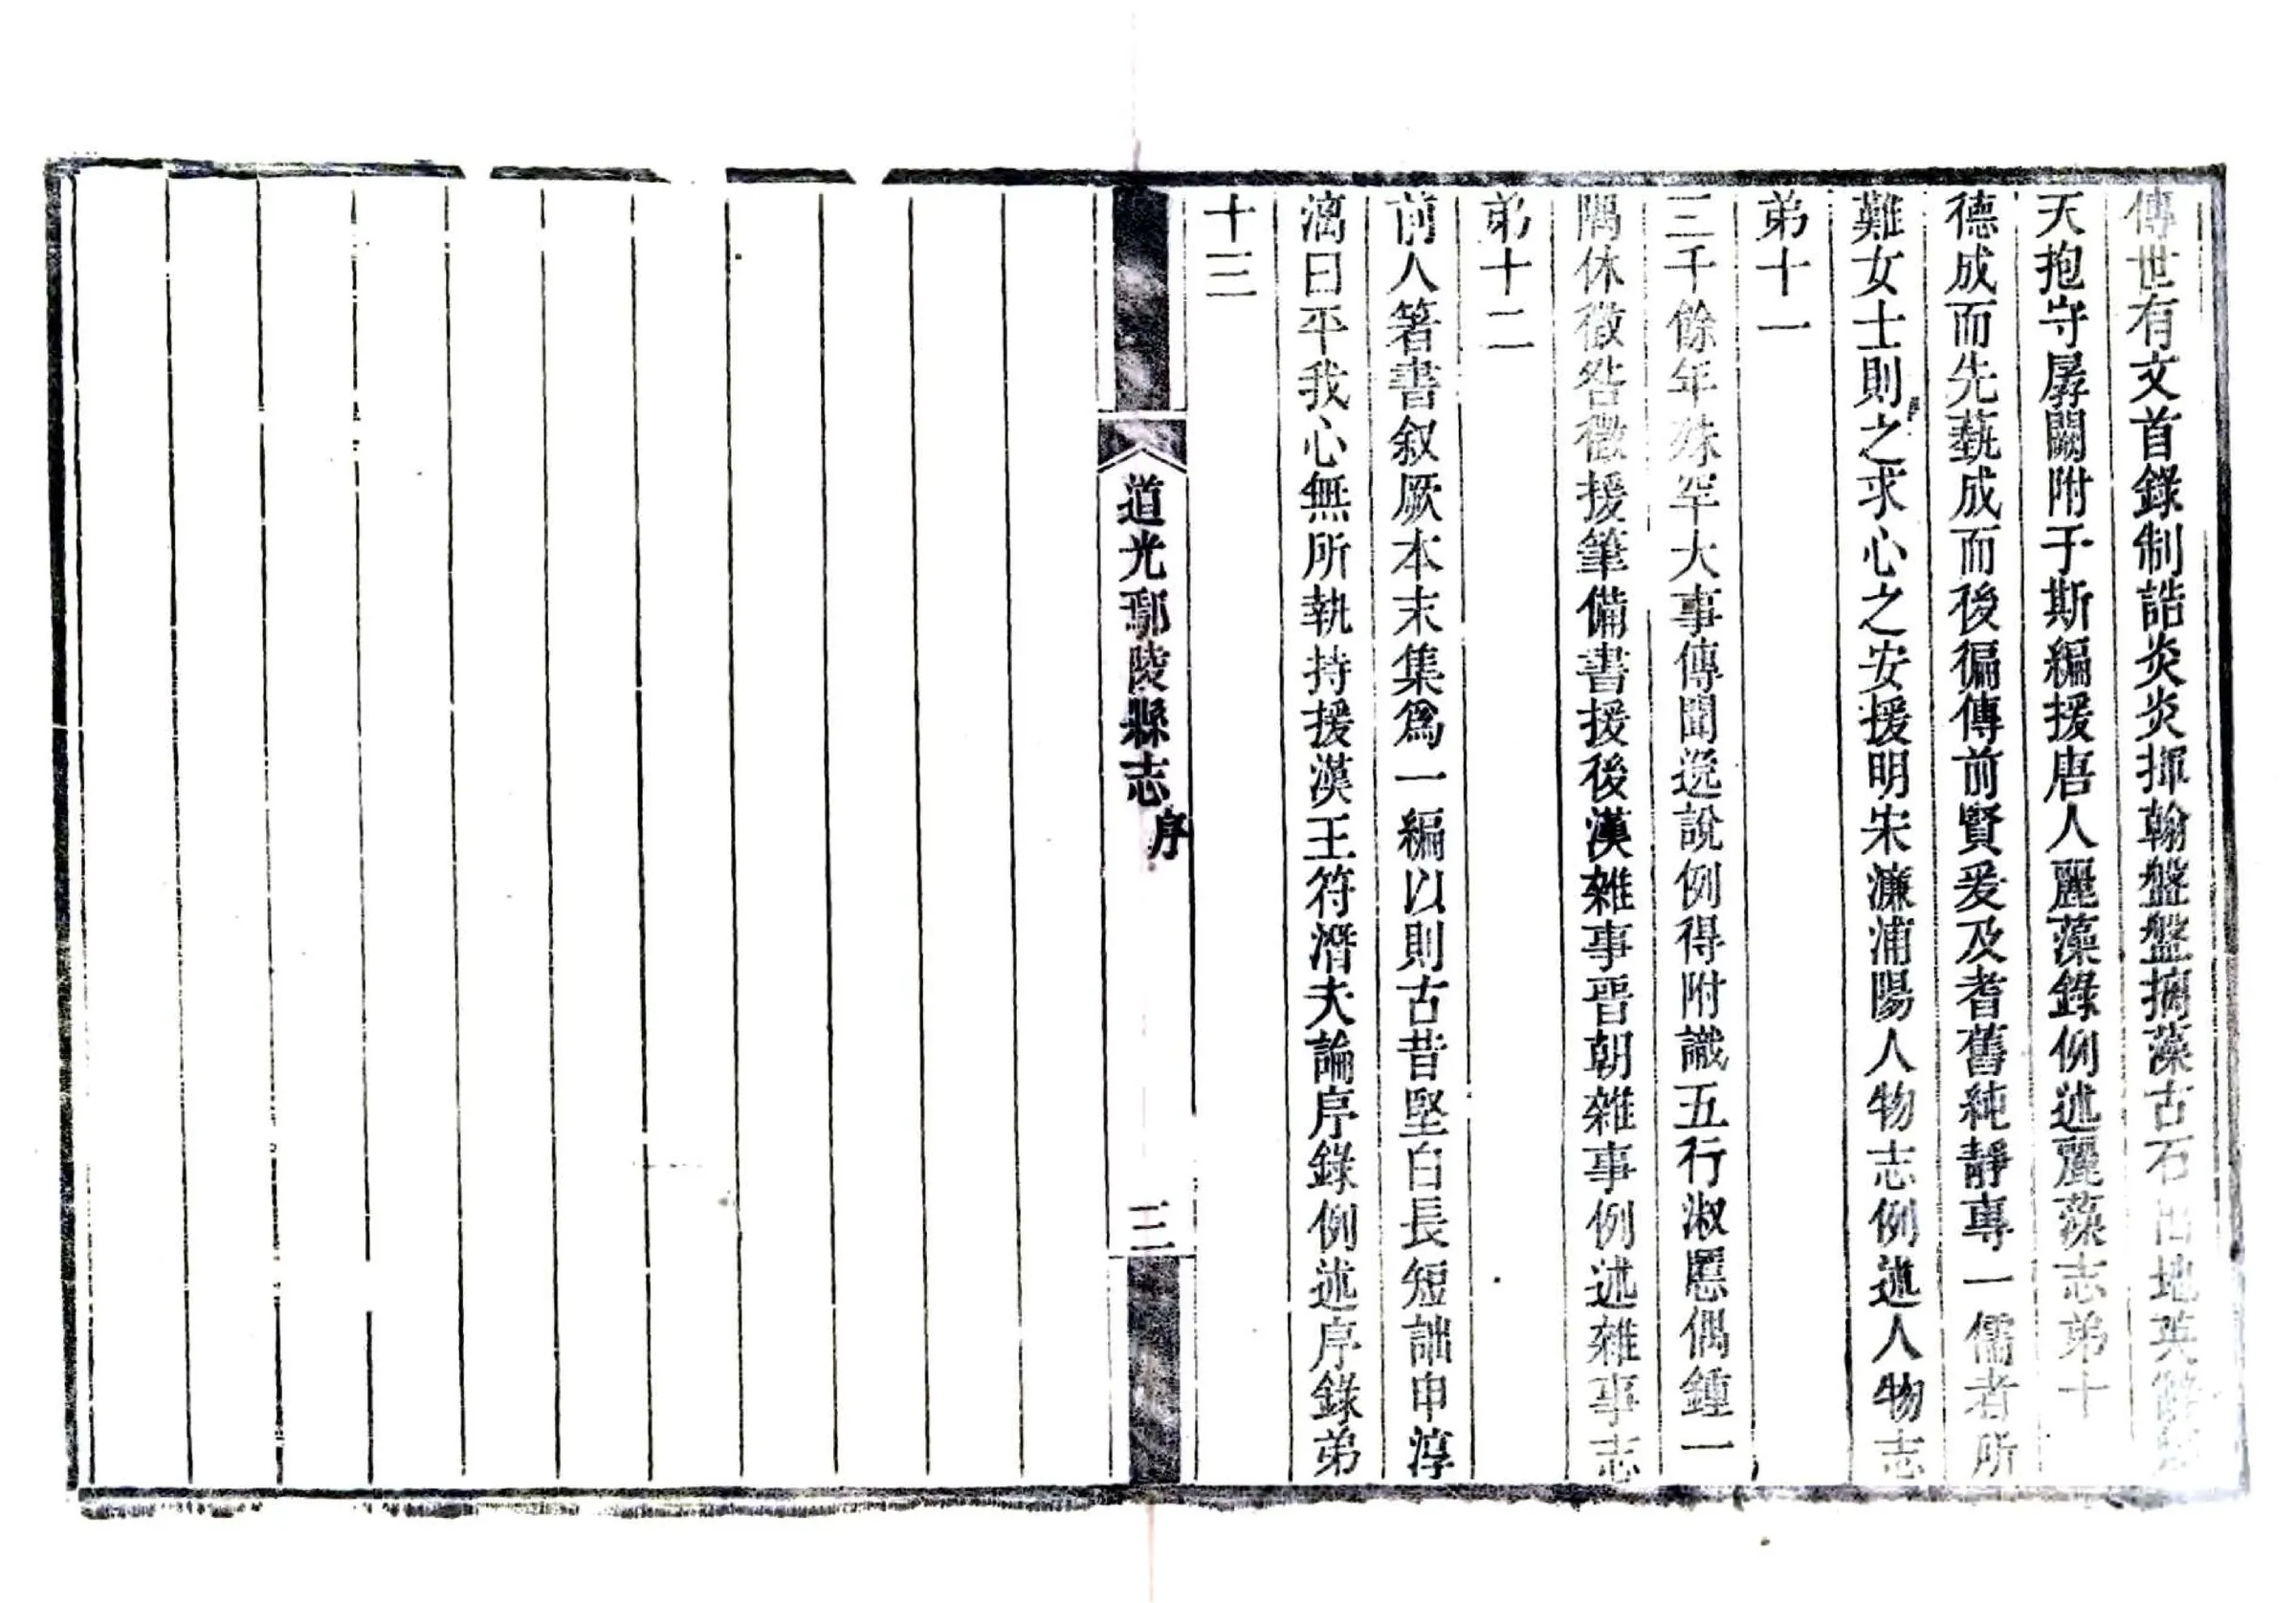 傳世有文首錄制誥炎炎揮翰盤盤摛藻古石出地英
天抱守孱闕附于斯編援唐人麗藻錄例述麗藻志弟十
德成而先藝成而後徧傳前賢爰及耆舊純靜專一儒者所
難女士則之求心之安援明宋濂浦陽人物志例述人物志
弟十一
三千餘年殊罕大事傳聞逸說例得附識五行淑慝偶鍾一
隅休徵咎徵援筆備書援後漢雜事晉朝雜事例述雜事志
弟十二
前人箸書叙厥本末集爲一編以則古昔堅白長短詘申淳
漓曰平我心無所執持援漢王符潛夫論序錄例述序錄弟
十三
道光鄢陵縣志 序
三